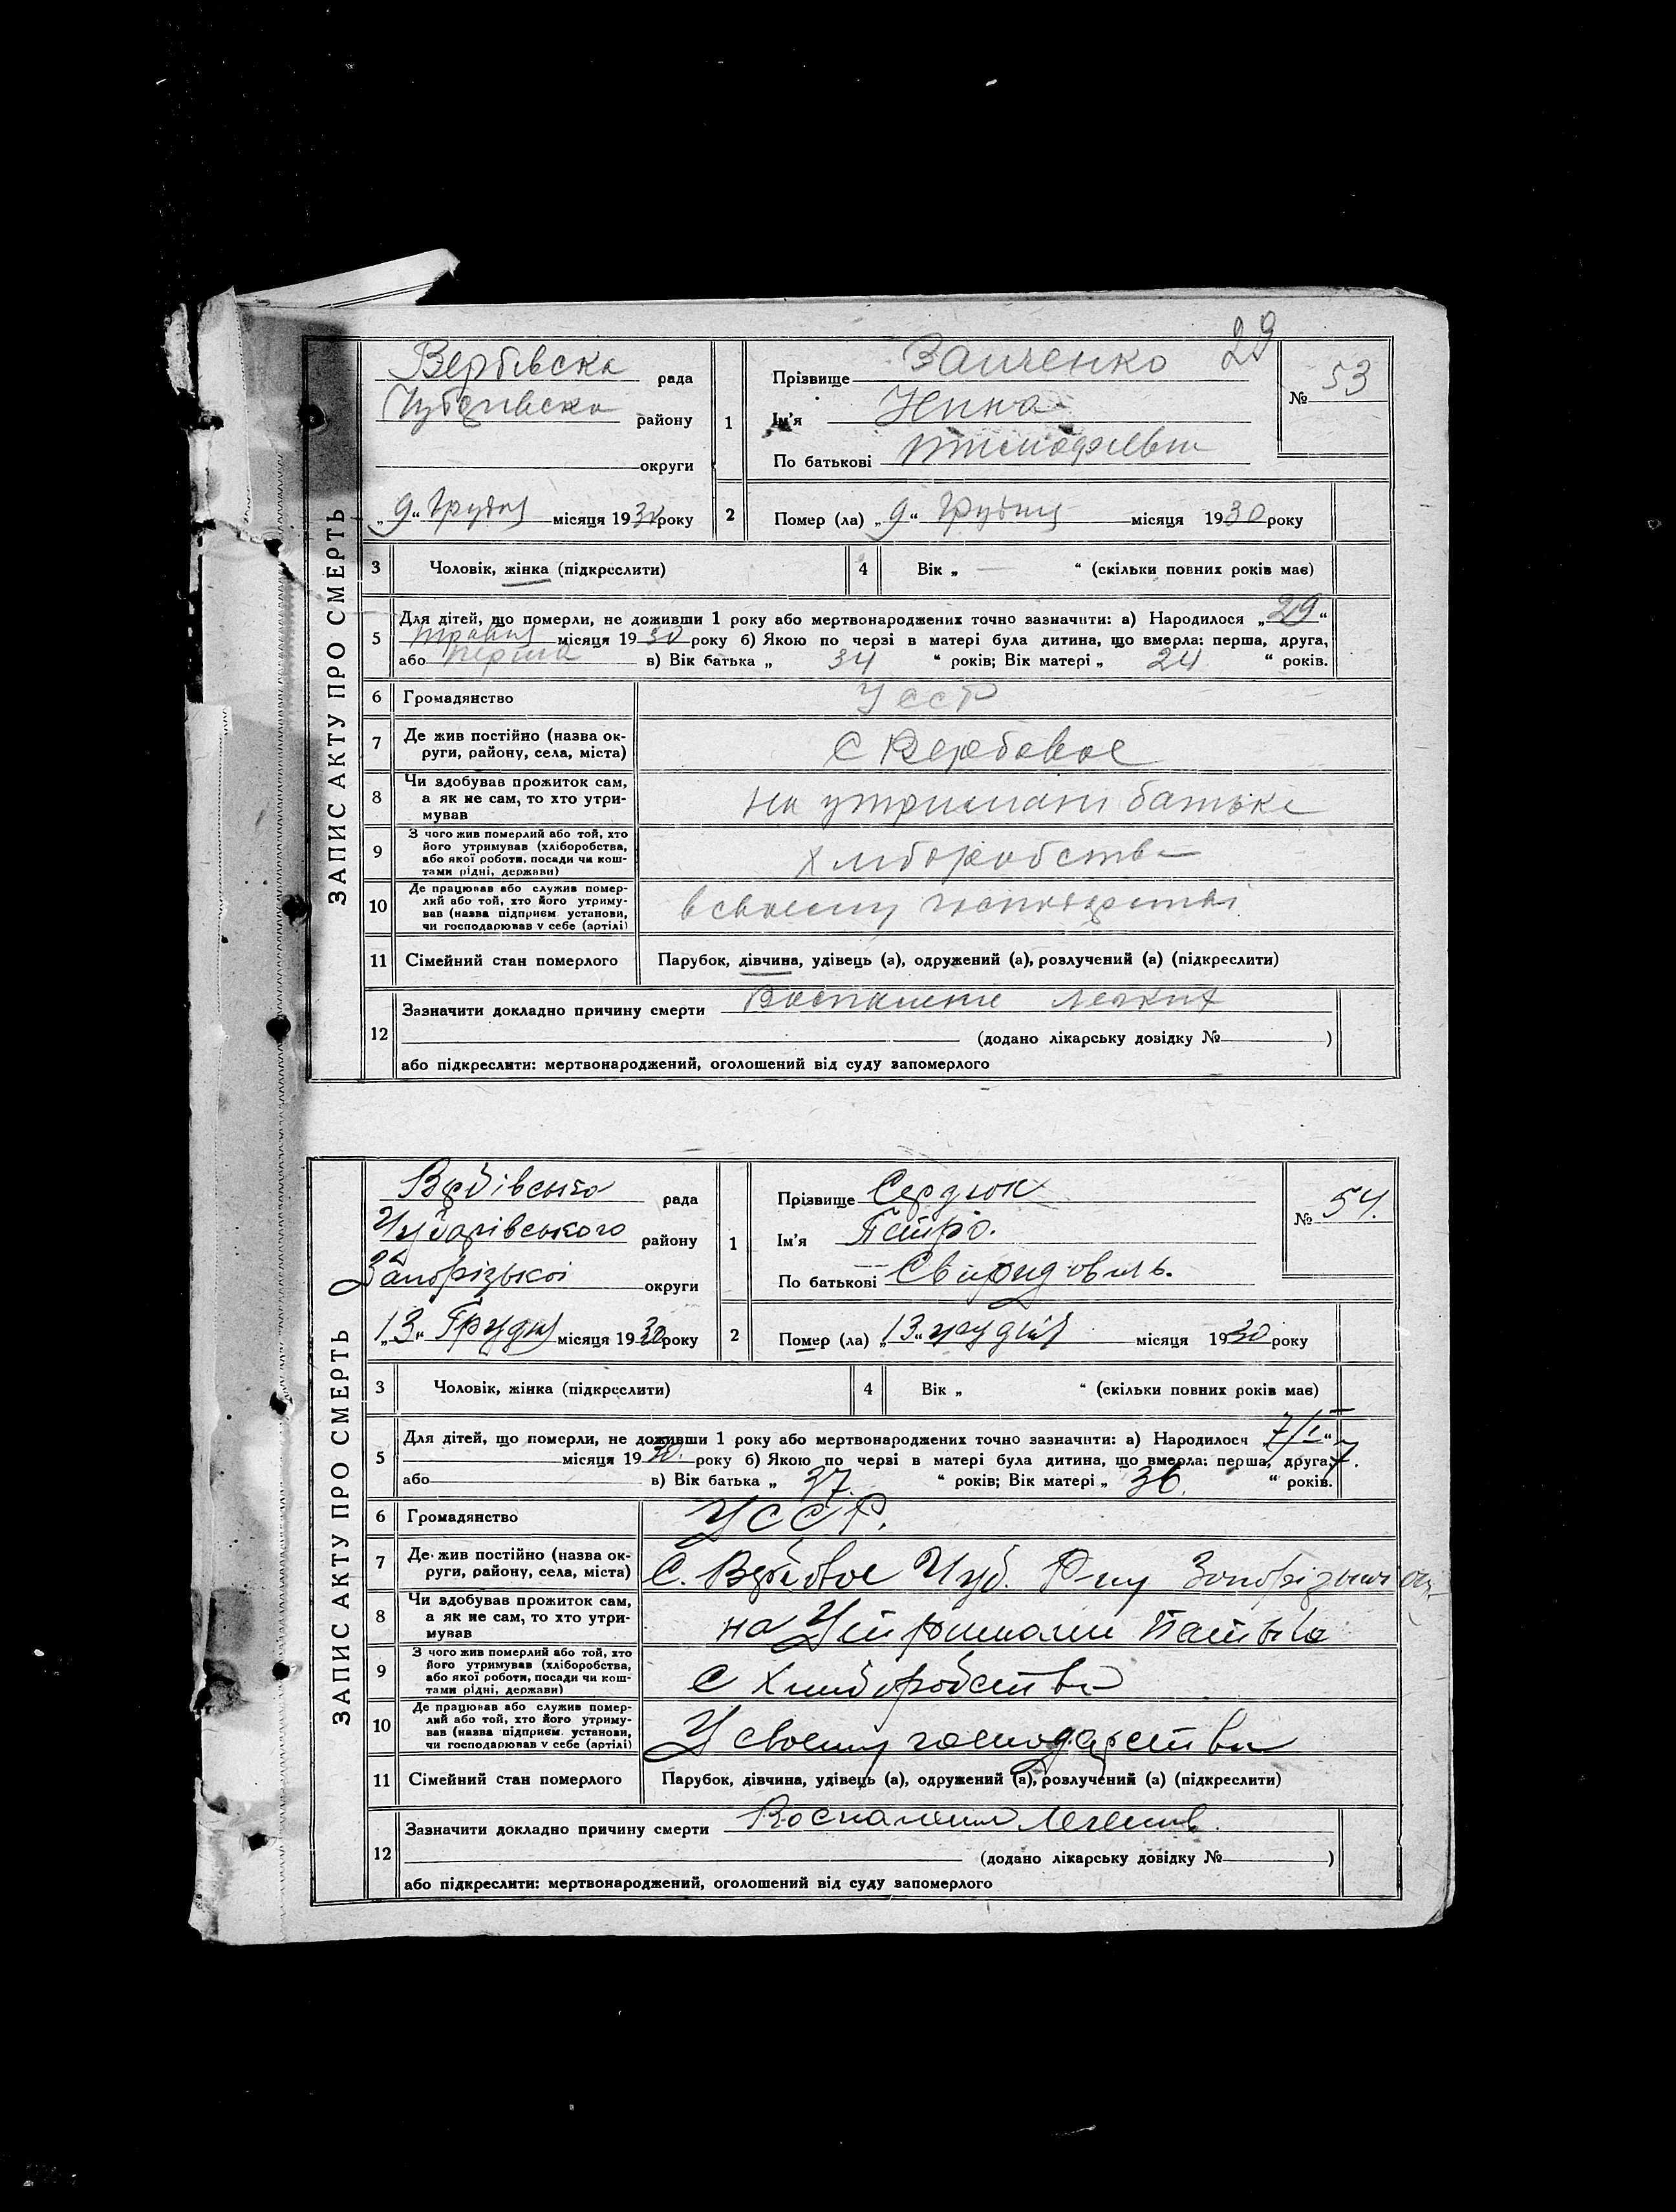 29
ЗАПИС АКТУ ПРО СМЕРТЬ
Вербівска рада
району
округи
„9“ Грудня місяця 1930 року
1
Прізвище Заиченко
Ім'я Нина
По батькові
№ 53
2 Помер (ла) „9“ Грудня місяця 1930 року
3 Чоловік, жінка (підкреслити)
4 Вік „ — “ (скільки повних років має)
5 Для дітей, що померли, не доживши 1 року або мертвонароджених точно зазначити: а) Народилося „29“
травня місяця 1930 року б) Якою по черзі в матері була дитина, що вмерла: перша, друга,
або перша в) Вік батька „ 34 “ років; Вік матері „ 24 “ років.
6 Громадянство УССР
7 Де жив постійно (назва округи, району, села, міста) С Вербовое
8 Чи здобував прожиток сам, а як не сам, то хто утримував на утримані батька
9 З чого жив померлий або той, хто його утримував (хліборобства, або якої роботи, посади чи коштами рідні, держави) хліборобства
10 Де працював або служив померлий або той, хто його утримував (назва підприєм. установи, чи господарював у себе (артілі) в своему господарстві
11 Сімейний стан померлого Парубок, дівчина, удівець (а), одружений (а), розлучений (а) (підкреслити)
12 Зазначити докладно причину смерти Воспаление легких
(додано лікарську довідку № )
або підкреслити: мертвонароджений, оголошений від суду запомерлого
ЗАПИС АКТУ ПРО СМЕРТЬ
Вербівська рада
Чубарівського району
Запорізькоі округи
„13“ Грудня місяця 1930 року
1
Прізвище Сердюк
Ім'я Петро.
По батькові Свиридовиль.
№ 54.
2 Помер (ла) „13“ грудня місяця 1930 року
3 Чоловік, жінка (підкреслити)
4 Вік „ “ (скільки повних років має)
5 Для дітей, що померли, не доживши 1 року або мертвонароджених точно зазначити: а) Народилося 7/I “
місяця 1930. року б) Якою по черзі в матері була дитина, що вмерла: перша, друга, 7.
або в) Вік батька „ 37. “ років; Вік матері „ 36. “ років.
6 Громадянство УССР.
7 Де жив постійно (назва округи, району, села, міста) С. Вербовое Чуб. Р-ну Запорізькоі
8 Чи здобував прожиток сам, а як не сам, то хто утримував на Утримани Батька
9 З чого жив померлий або той, хто його утримував (хліборобства, або якої роботи, посади чи коштами рідні, держави) С Хлиборобства
10 Де працював або служив померлий або той, хто його утримував (назва підприєм. установи, чи господарював у себе (артілі) У своему господарстви
11 Сімейний стан померлого Парубок, дівчина, удівець (а), одружений (а), розлучений (а) (підкреслити)
12 Зазначити докладно причину смерти Воспаления
(додано лікарську довідку № )
або підкреслити: мертвонароджений, оголошений від суду запомерлого